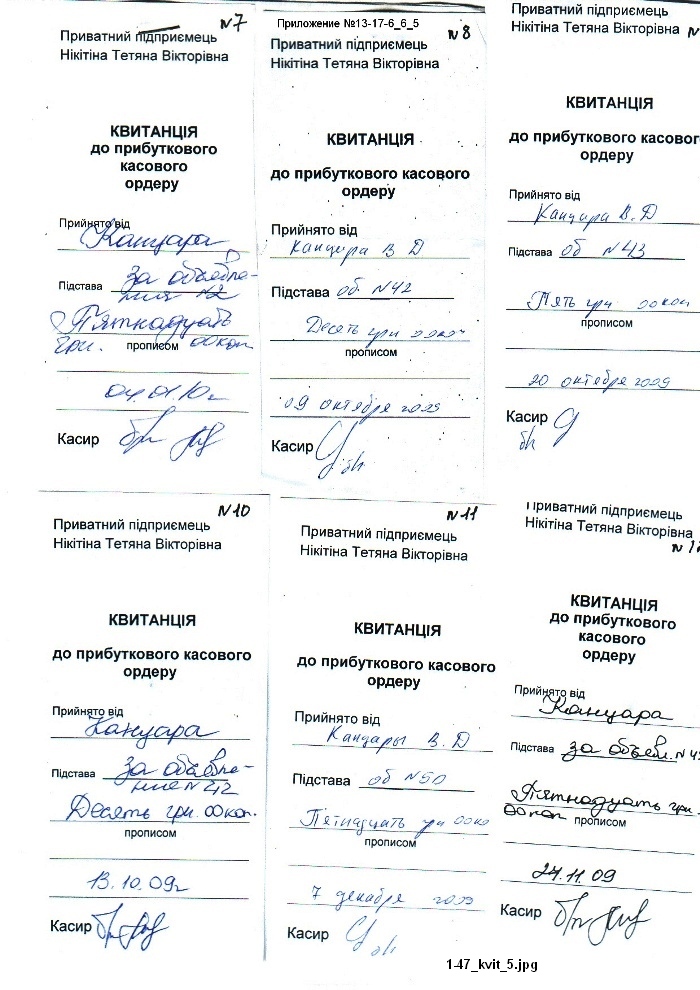 №7
Приватний підприємець
Нікітіна Тетяна Вікторівна
КВИТАНЦІЯ
до прибуткового
касового
ордеру
Прийнято від
Канцара
Підстава за объявле-
ния №2
Пятнадцать
грн. прописом 00коп.
04.01.10г
Касир
Приложение №13-17-6_6_5
№8
Приватний підприємець
Нікітіна Тетяна Вікторівна
КВИТАНЦІЯ
до прибуткового касового
ордеру
Прийнято від
Канцара В Д
Підстава об №42
Десять грн 00коп
прописом
09 октября 2009
Касир
Приватний підприємець
Нікітіна Тетяна Вікторівна
№
КВИТАНЦІЯ
до прибуткового касового
ордеру
Прийнято від
Канцара В.Д
Підстава об №43
Пять грн 00коп
прописом
20 октября 2009
Касир
№10
Приватний підприємець
Нікітіна Тетяна Вікторівна
КВИТАНЦІЯ
до прибуткового касового
ордеру
Прийнято від
Канцара
Підстава за объявле-
ние №42
Десять грн. 00коп.
прописом
13.10.09г
Касир
№11
Приватний підприємець
Нікітіна Тетяна Вікторівна
КВИТАНЦІЯ
до прибуткового касового
ордеру
Прийнято від
Канцары В.Д
Підстава об №50
Пятнадцать грн 00ко
прописом
7 декабря 2009
Касир
Приватний підприємець
Нікітіна Тетяна Вікторівна
№1
КВИТАНЦІЯ
до прибуткового
касового
ордеру
Прийнято від
Канцара
Підстава за объявл. №4
Пятнадцать грн.
00коп прописом
24.11.09
Касир
1-47_kvit_5.jpg